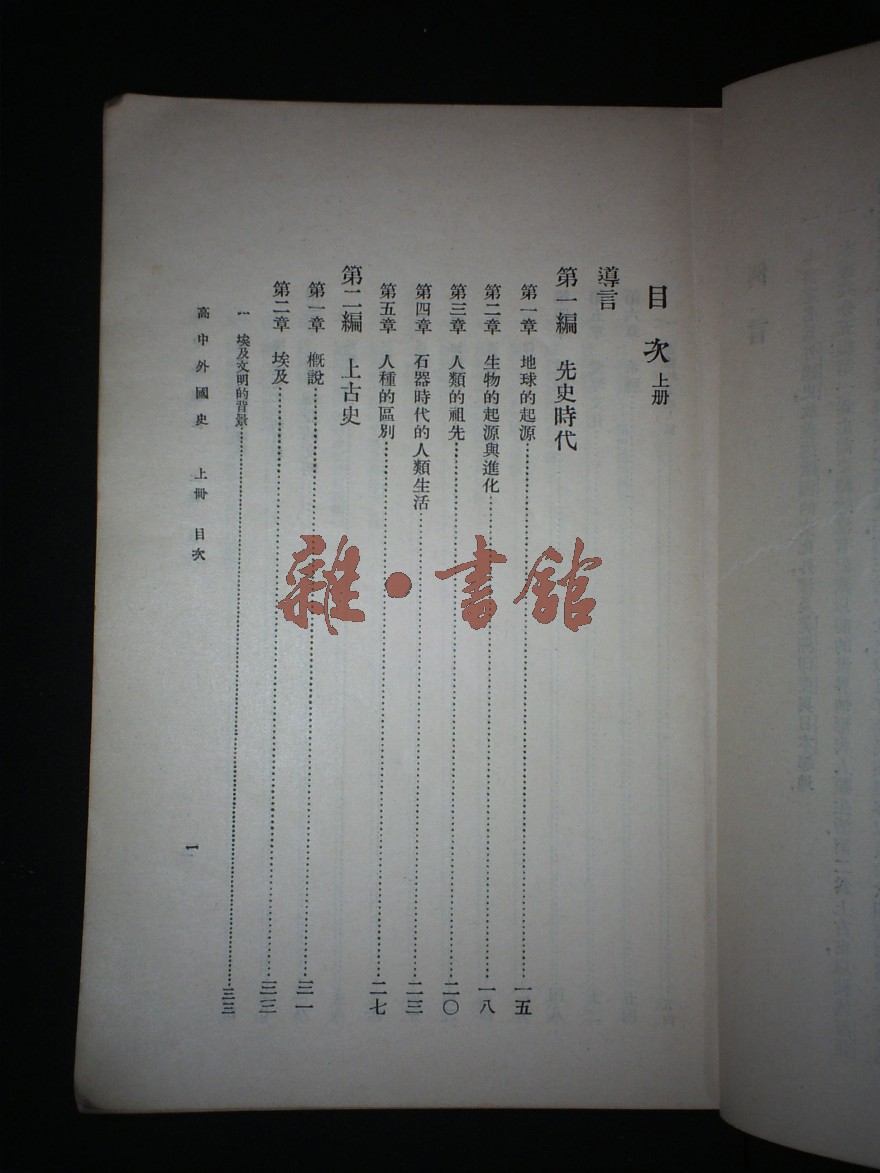 目次 上册
導言
第一編 先史時代
第一章 地球的起源……一五
第二章 生物的起源與進化……一八
第三章 人類的祖先……二〇
第四章 石器時代的人類生活……二三
第五章 人種的區別……二七
第二編 上古史
第一章 概說……三一
第二章 埃及……三三
一 埃及文明的背景……三三
高中外國史 上冊 目次
一
雜·書館